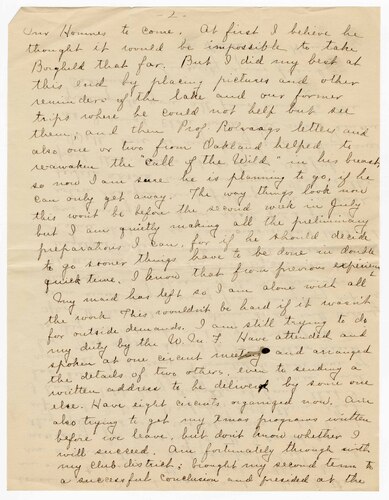 2.
Mr Hommes to come. At first I believe he
thought it would be impossible to take
Borghild that far. But I did my best at
this end by placing pictures and other
reminders of the lake and our former
trips where he could not help but see
them, and then Prof. Rolvaags letter and
also one or two from Oakland helped to
reawaken the "Call of the Wild" in his breast,
so now I am sure he is planning to go, if he
can only get away. The way things look now
this wont be before the second week in July
but I am quietly making all the preliminary
preparations I can, for if he should decide
to go sooner things have to be done in double
quick time, I know that from previous experience
My maid has left so I am alone with all
the work. This wouldn't be hard if it wasn't
for outside demands. I am still trying to do
my duty by the W. M. F. Have attended and
spoken at one circuit meeting and arranged
the details of two others, even to sending a
written address to be delivered by some one
else. Have eight circuits organized now. Am
also trying to get my Xmas programs written
before we leave, but dont know whether I
will succeed. Am fortunately through with
my club district; brought my second term to
a successful conclusion and presided at the